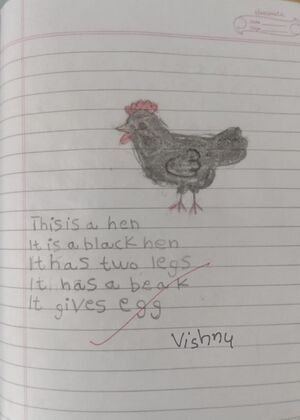 This is a hen
It is a black hen
It has two legs
It has a beak
It gives egg
Vishny